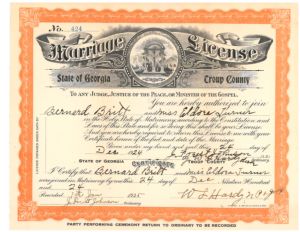 No. 424
Marriage License
State of Georgia Troup County
TO ANY JUDGE, JUSTICE OF THE PEACE, OR MINISTER OF THE GOSPEL.
You are hereby authorized to join
Bernard Britt and Miss Eldora Turner
in the Holy State of Matrimony, according to the Constitution and
Laws of this State and for so doing this shall be your License.
And you are hereby required to return this License to me with your
Certificate
Given under my hand and seal this 24 day of
Dec 1924
STATE OF GEORGIA Certificate TROUP COUNTY
I Certify that Bernard Britt and Miss Eldora Turner
were joined in Matrimony by me this 24 day of Dec Nineteen Hundred
and 24
Recorded Jan 1925 W L Hardy
PARTY PERFORMING CEREMONY RETURN TO ORDINARY TO BE RECORDED